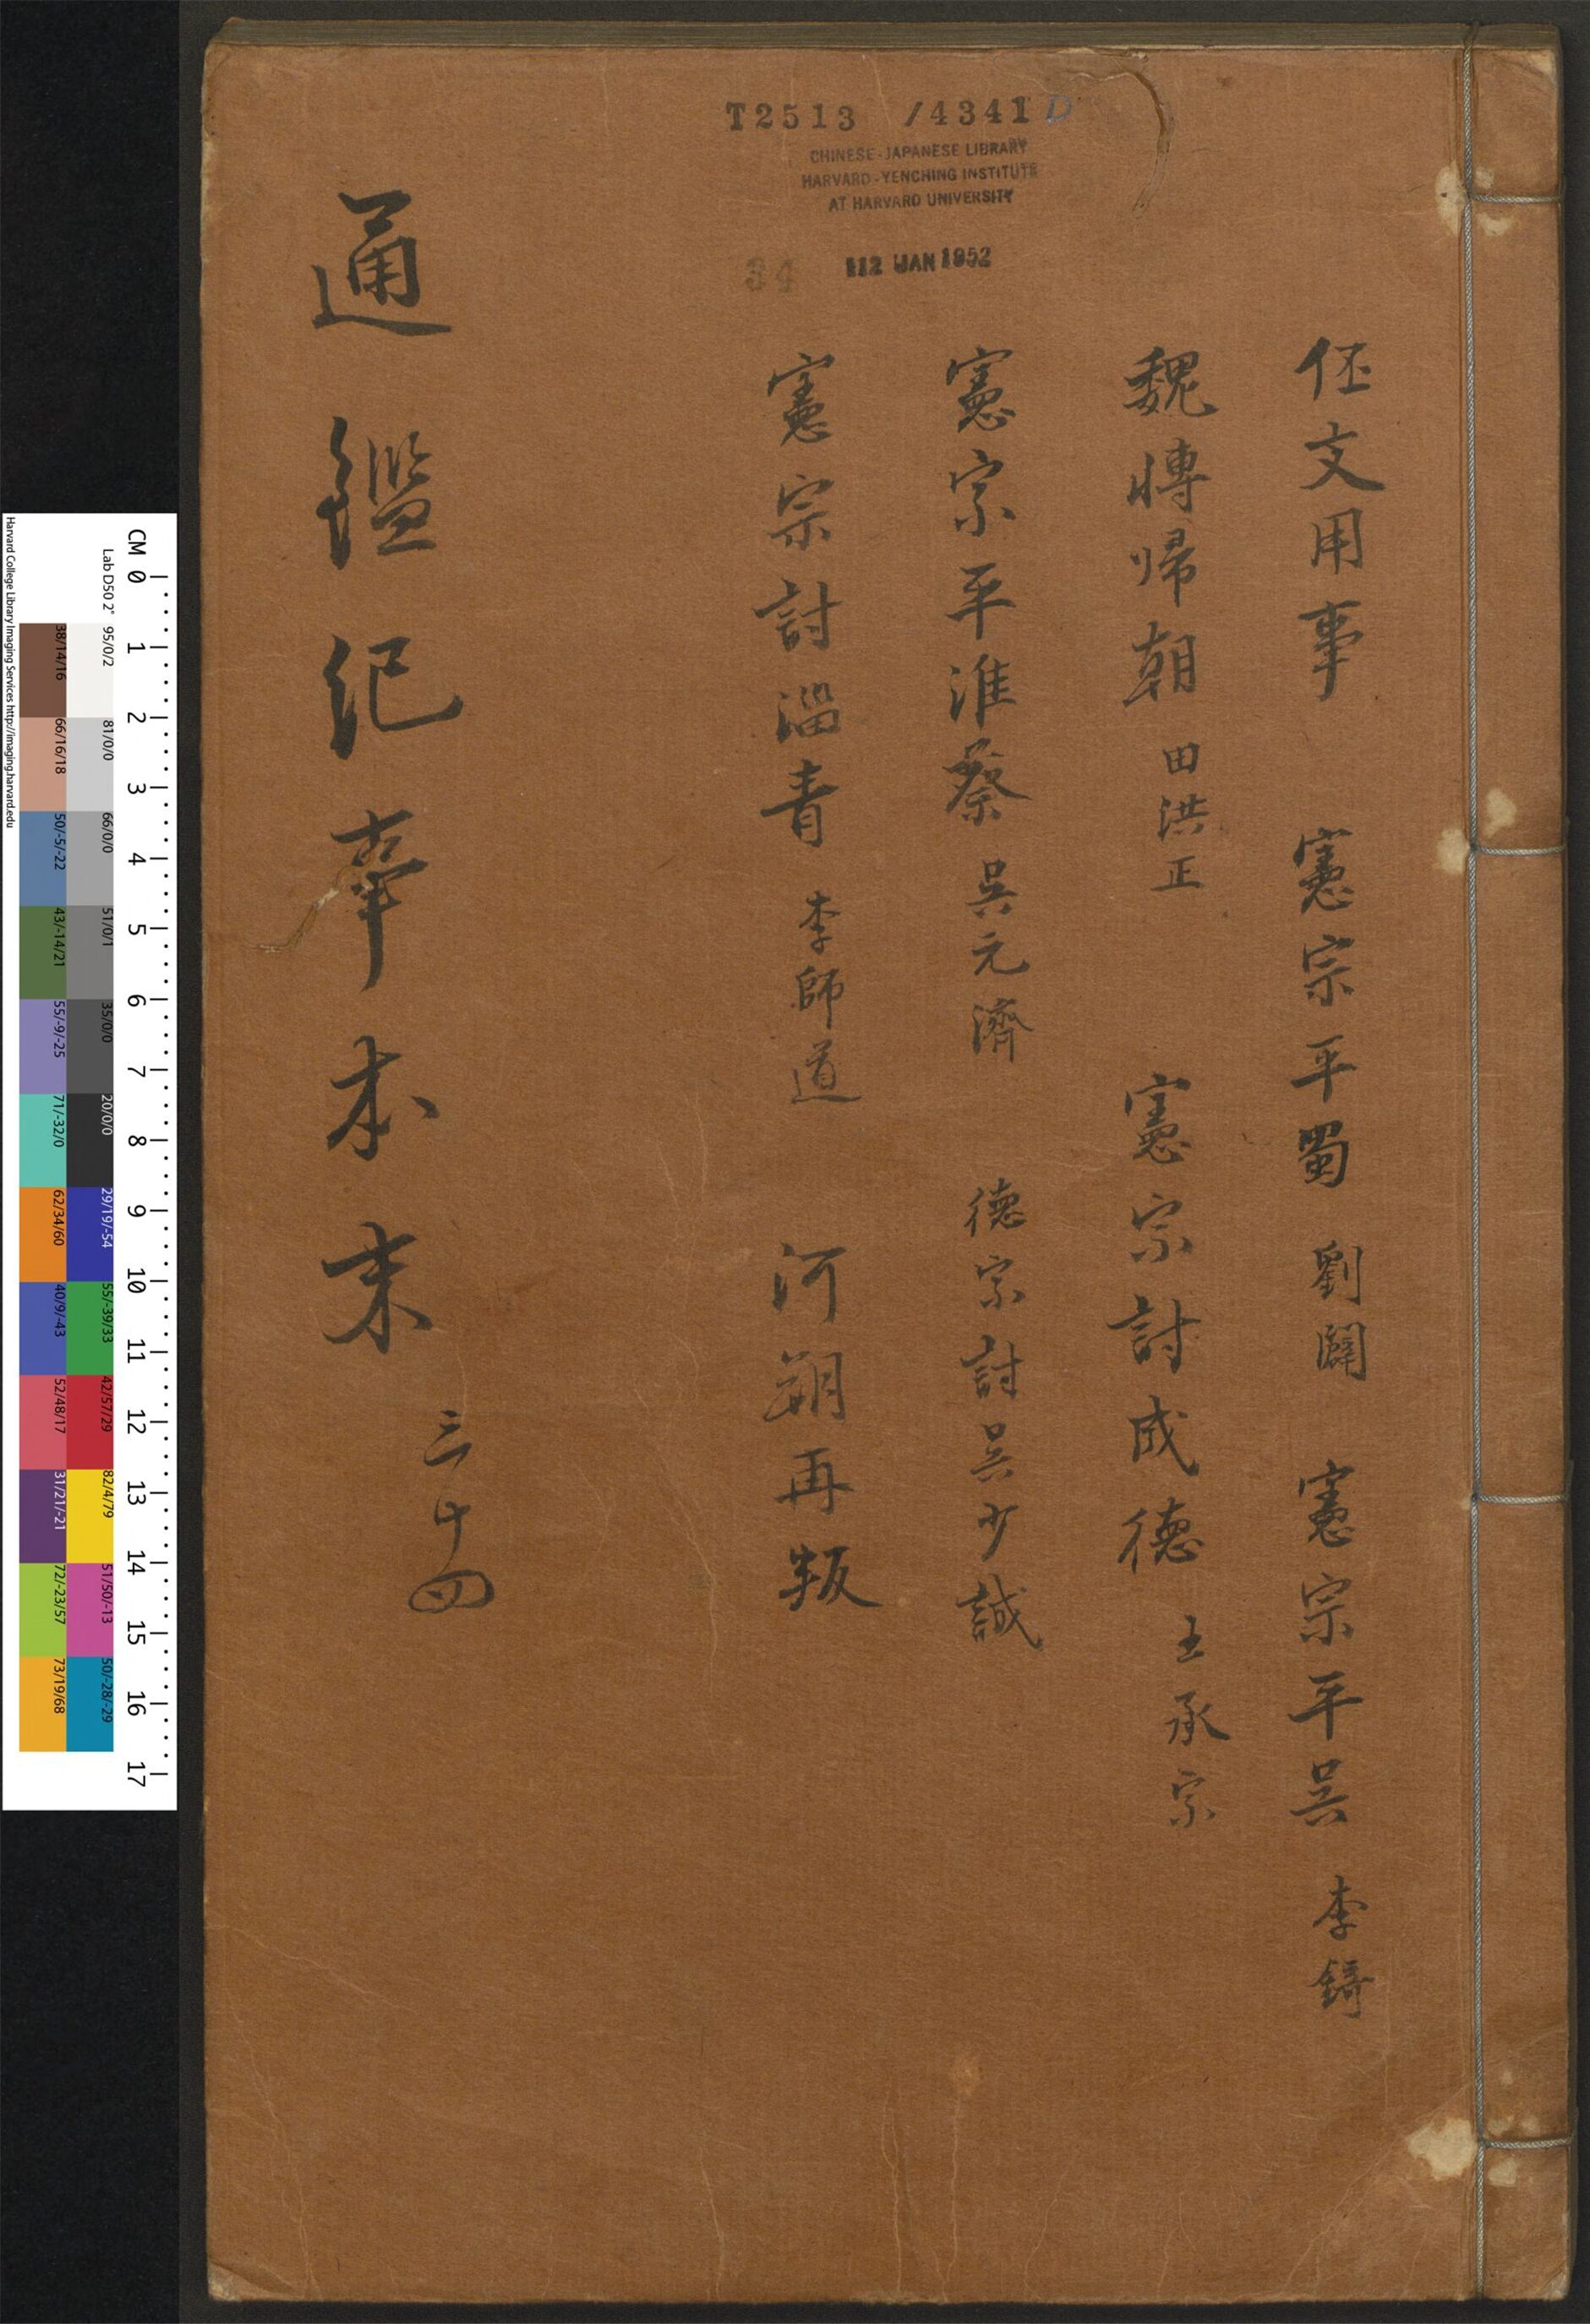 T2513 /4341 D
CHINESE-JAPANESE LIBRARY
HARVARD-YENCHING INSTITUTE
AT HARVARD UNIVERSITY
34 112 JAN 1952
伾文用事 憲宗平蜀 劉闢 憲宗平吳 李錡
魏博歸朝 田洪正 憲宗討成德 王承宗
憲宗平淮蔡 吳元濟 德宗討吳少誠
憲宗討淄青 李師道 河朔再叛
通鑑紀事本末 三十四
CM 0 1 2 3 4 5 6 7 8 9 10 11 12 13 14 15 16 17
Lab D50 2° 95/0/2 81/0/0 66/0/0 51/0/1 35/0/0 20/0/0 29/19/-54 55/-39/33 42/57/29 82/4/79 51/50/-13 50/-28/-29
38/14/16 66/16/18 50/-5/-22 43/-14/21 55/-9/-25 71/-32/0 62/34/60 40/9/-43 52/48/17 31/21/-21 72/-23/57 73/19/68
Harvard College Library Imaging Services http://imaging.harvard.edu